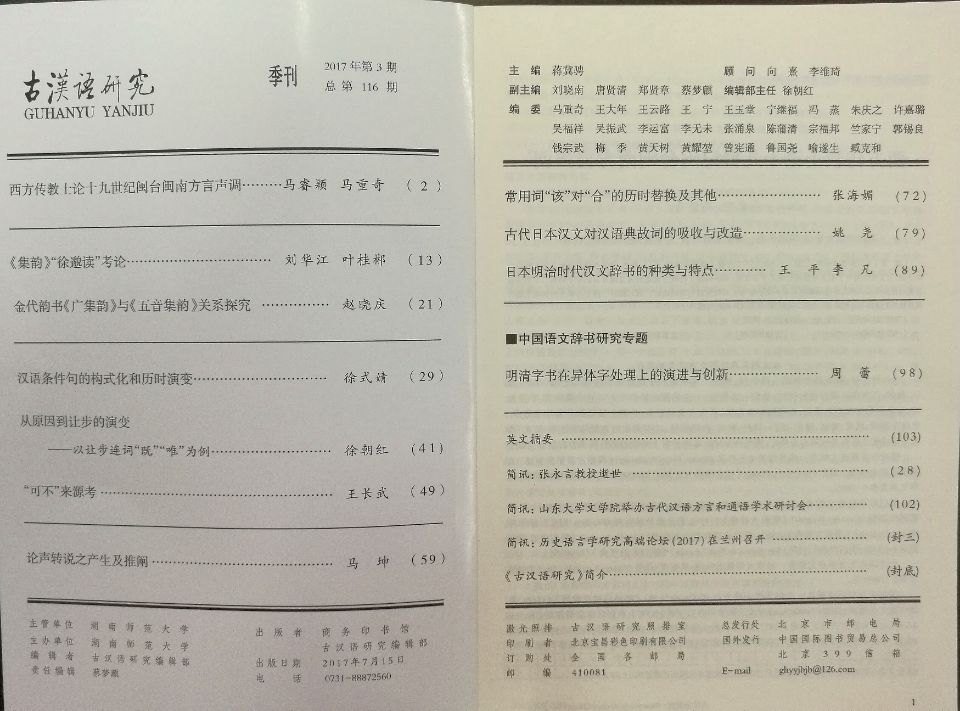 古漢語研究
GUHANYU YANJIU
季刊
2017年第3期
总第116期
西方传教士论十九世纪闽台闽南方言声调………马睿颖 马重奇 (2)
《集韵》“徐邈读”考论……………………………刘华江 叶桂郴 (13)
金代韵书《广集韵》与《五音集韵》关系探究……………赵晓庆 (21)
汉语条件句的构式化和历时演变…………………………徐式婧 (29)
从原因到让步的演变
——以让步连词“既”“唯”为例…………………………徐朝红 (41)
“可不”来源考………………………………………………王长武 (49)
论声转说之产生及推阐……………………………………马 坤 (59)
主管单位 湖南师范大学
主办单位 湖南师范大学
编辑者 古汉语研究编辑部
责任编辑 蔡梦麒
出版者 商务印书馆
古汉语研究编辑部
出版日期 2017年7月15日
电话 0731-88872560
主编 蒋冀骋 顾问 向熹 李维琦
副主编 刘晓南 唐贤清 郑贤章 蔡梦麒 编辑部主任 徐朝红
编委 马重奇 王大年 王云路 王宁 王玉堂 宁继福 冯蒸 朱庆之 许嘉璐
吴福祥 吴振武 李运富 李无未 张涌泉 陈蒲清 宗福邦 竺家宁 郭锡良
钱宗武 梅季 黄天树 黄耀堃 曾宪通 鲁国尧 喻遂生 臧克和
常用词“该”对“合”的历时替换及其他……………………张海媚 (72)
古代日本汉文对汉语典故词的吸收与改造………………姚 尧 (79)
日本明治时代汉文辞书的种类与特点……………王 平 李 凡 (89)
■中国语文辞书研究专题
明清字书在异体字处理上的演进与创新…………………周 蕾 (98)
英文摘要……………………………………………………(103)
简讯:张永言教授逝世……………………………………(28)
简讯:山东大学文学院举办古代汉语方言和通语学术研讨会…………(102)
简讯:历史语言学研究高端论坛(2017)在兰州召开……………(封三)
《古汉语研究》简介………………………………………(封底)
激光照排 古汉语研究照排室
印刷者 北京宝昌彩色印刷有限公司
订购处 全国各邮局
邮编 410081
总发行处 北京市邮电局
国外发行 中国国际图书贸易总公司
北京399信箱
E-mail ghyyjbjb@126.com
1